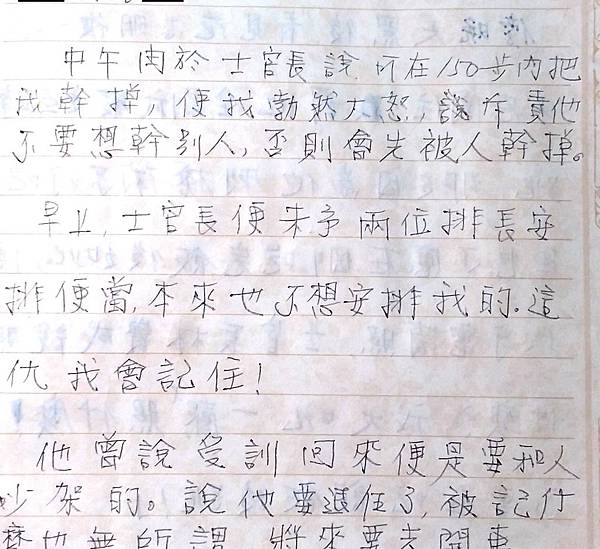 中午由於士官長說可在150步內把
我幹掉,使我勃然大怒,說斥責他
不要想幹別人,否則會先被人幹掉。
早上,士官長便未予兩位排長安
排便當,本來也不想安排我的.這
仇我會記住!
他曾說受訓回來便是要和人
吵架的。說他要退伍了,被記什
麼也無所謂 將來要去開車